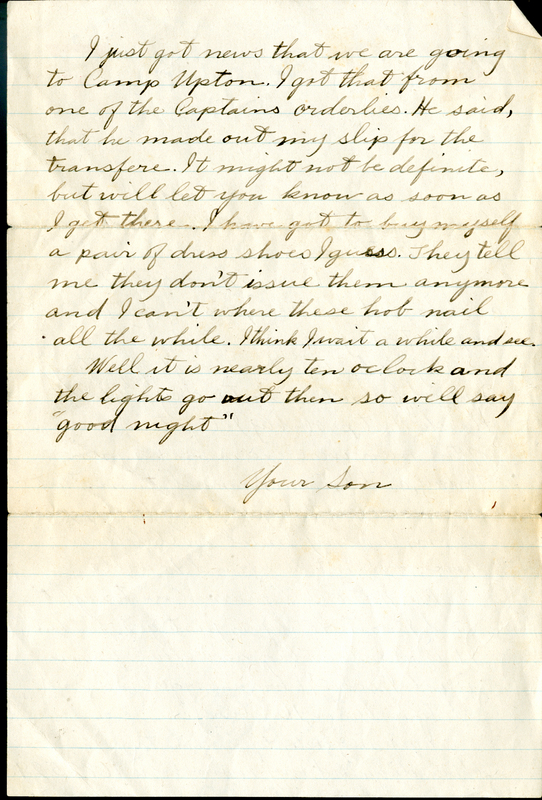 I just got news that we are going
to Camp Upton. I got that from
one of the Captains orderlies. He said,
that he made out my slip for the
transfere. It might not be definite,
but will let you know as soon as
I get there. I have got to buy myself
a pair of dress shoes I guess. They tell
me they don't issue them anymore
and I can't where these hob nail
all the while. I think I wait a while and see.
Well it is nearly ten oclock and
the lights go out then so will say
"good night"
Your Son